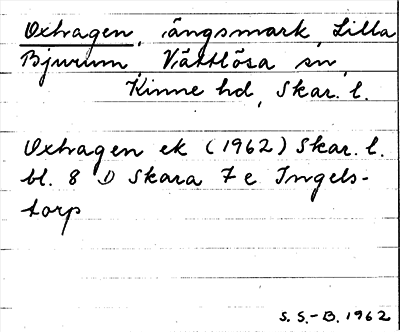 Oxhagen, ängsmark, Lilla
Bjurum, Vättlösa sn,
Kinne hd, Skar. l.
Oxhagen ek (1962) Skar. l.
bl. 8 D Skara 7 e Ingels-
torp
S. S.-B. 1962